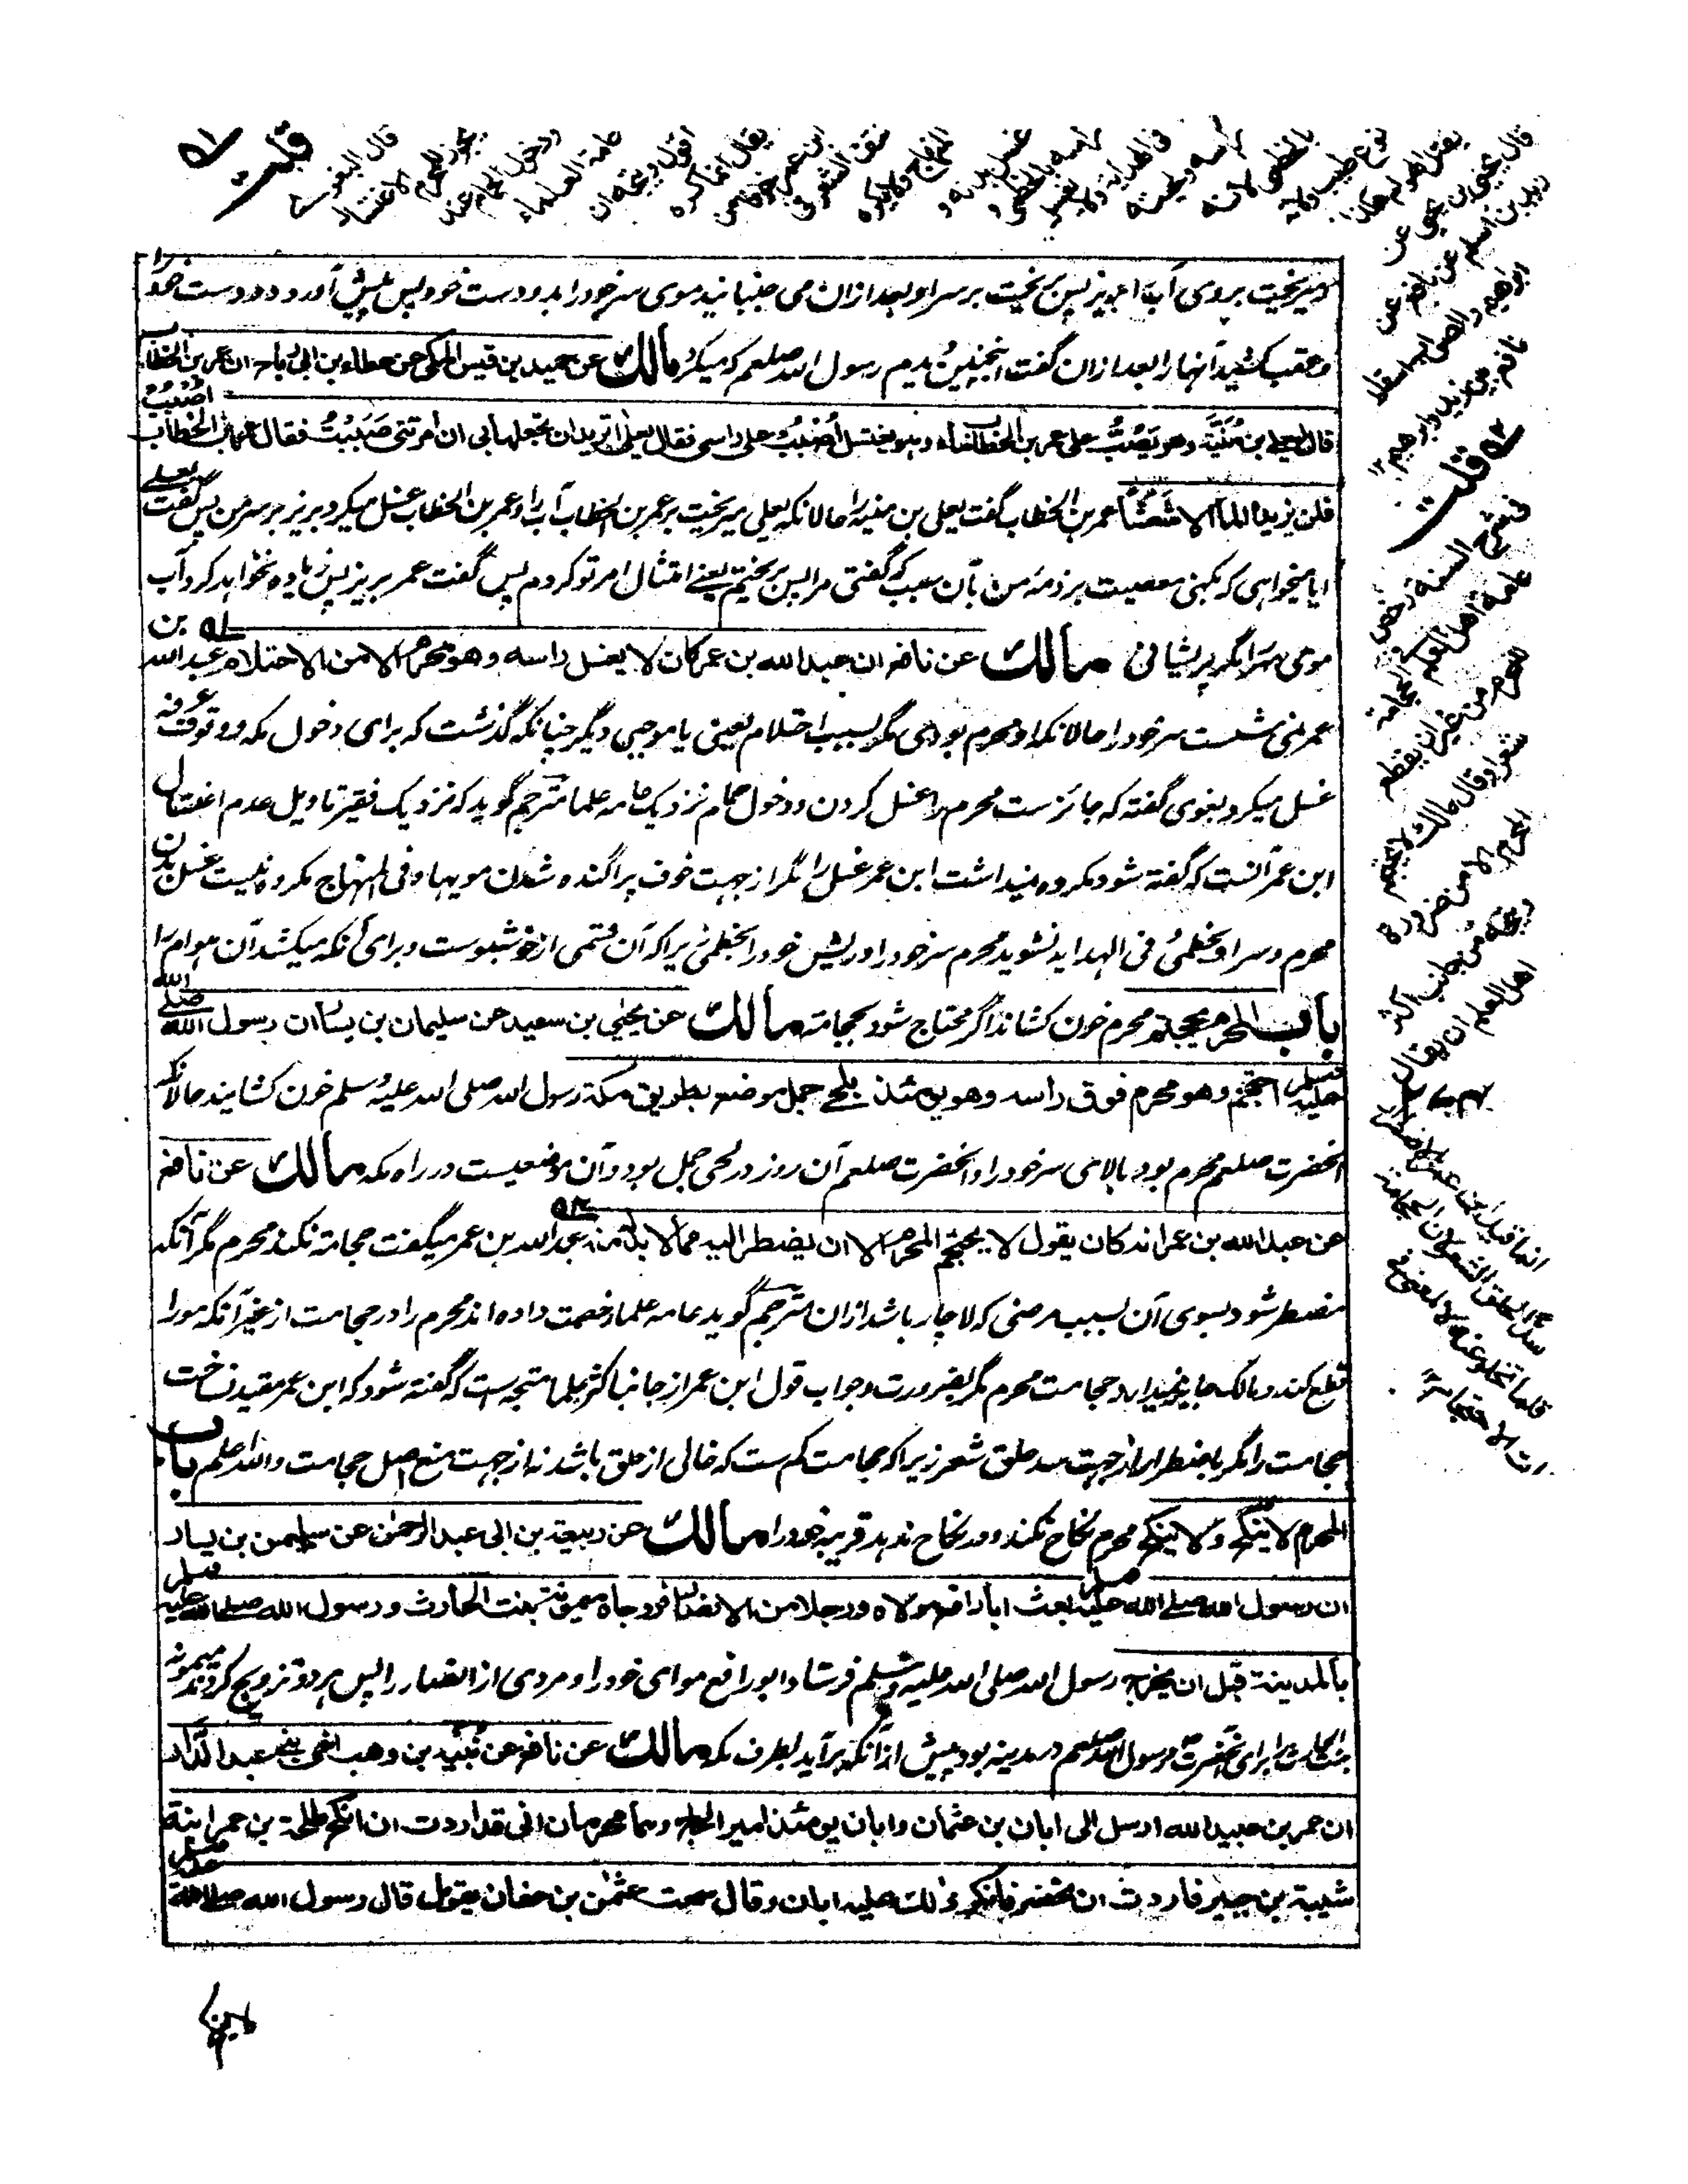 میریخت بروی آب را بریز پس ریخت بر سر او بعد ازان می جنبانید موی سر خود را بدو دست خود پس پیش آورد دو دست خود را
و عقب کشید آنها را بعد ازان گفت اینچنین دیدم رسول الله صلعم که میکرد مالك عن حمید بن قیس المکی عن عطاء بن ابی رباح ان عمر بن الخطاب
قال لیعلی بن منیة وهو یصب علی عمر بن الخطاب ماء وهو یغتسل اصبب علی راسی فقال یعلی اترید ان تجعلها بی ان امرتنی صببت فقال عمر بن الخطاب اصبب
فلن یزیده الماء الا شعثا عمر بن الخطاب گفت یعلی بن منیه را حالانکه یعلی میریخت بر عمر بن الخطاب آب را و عمر بن الخطاب غسل میکرد بریز بر سر من پس گفت یعلی
ایا میخواهی که بکنی معصیت بر ذمه من بآن سبب که گفتی مرا پس ریختم یعنی امتثال امر تو کردم پس گفت عمر بریز پس زیاده نخواهد کرد آب
موی سر را مگر پریشانی مالك عن نافع ان عبد الله بن عمر کان لا یغسل راسه وهو محرم الا من الاحتلام عبد الله بن
عمر نمی شست سر خود را حالانکه او محرم بودی مگر بسبب احتلام یعنی یا موجبی دیگر چنانکه گذشت که برای دخول مکه و وقوف عرفه
غسل میکرد بغوی گفته که جائزست محرم را غسل کردن و دخول حمام نزدیک عامه علما مترجم گوید که نزدیک فقیر تاویل عدم اغتسال
ابن عمر آنست که گفته شود مکروه میداشت ابن عمر غسل را مگر از جهت خوف پراگنده شدن مویها و فی المنهاج مکروه نیست غسل بدن
محرم و سر او بخطمی و فی الهدایه نشوید محرم سر خود را و ریش خود را بخطمی زیراکه آن قسمی از خوشبوست و برای آنکه میکشد آن هوام را
باب المحرم یحتجم محرم خون کشاند اگر محتاج شود بحجامته مالك عن یحیی بن سعید عن سلیمان بن یسار ان رسول الله صلی الله
علیه وسلم احتجم وهو محرم فوق راسه وهو یومئذ بلحی جمل موضع بطریق مکة رسول الله صلی الله علیه وسلم خون کشانید حالانکه
آنحضرت صلعم محرم بود بالای سر خود را و آنحضرت صلعم آن روز در لحی جمل بود و آن موضعیست در راه مکه مالك عن نافع
عن عبد الله بن عمر انه کان یقول لا یحتجم المحرم الا ان یضطر الیه مما لا بد منه عبد الله بن عمر میگفت حجامته نکند محرم مگر آنکه
مضطر شود بسوی آن بسبب مرضی که لاچار باشد ازان مترجم گوید عامه علما رخصت داده اند محرم را در حجامت از غیر آنکه مو را
قطع کند و مالک جایز نمیدارد حجامت محرم مگر بضرورت و جواب قول ابن عمر از جانب اکثر علما متجه است که گفته شود که ابن عمر مقید نساخت
حجامت را مگر باضطرار از جهت سد حلق شعر زیراکه حجامت کم ست که خالی از حلق باشد نه از جهت منع اصل حجامت والله اعلم باب
المحرم لا ینکح ولا ینکح محرم نکاح نکند و در نکاح ندهد قریبه خود را مالك عن ربیعة بن ابی عبد الرحمن عن سلیمن بن یسار
ان رسول الله صلی الله علیه وسلم بعث ابا رافع مولاه ورجلا من الانصار فزوجاه میمونة بنت الحارث ورسول الله صلی الله علیه وسلم
بالمدینة قبل ان یخرج رسول الله صلی الله علیه وسلم فرستاد ابو رافع مولای خود را و مردی از انصار را پس هر دو تزویج کردند میمونه
بنت الحارث را برای آنحضرت و رسول الله صلعم در مدینه بود پیش از آنکه برآید بطرف مکه مالك عن نافع عن نبیه بن وهب اخی بنی عبد الدار
ان عمر بن عبید الله ارسل الی ابان بن عثمان وابان یومئذ امیر الحاج وهما محرمان انی قد اردت ان انکح طلحة بن عمر ابنة
شیبة بن جبیر فاردت ان تحضر فانکر ذلك علیه ابان وقال سمعت عثمن بن عفان یقول قال رسول الله صلی الله علیه وسلم
قلت
قال البغوی
یجوز للمحرم الاغتسال
ودخول الحمام عند
عامة العلماء
اقول ویتجه ان
یقال انما کره
ابن عمر خوفا من
المنهاج ولا یکره
غسل بدنه و
راسه بالخطمی و
فی الهدایة ولا یغسل
راسه ولحیته
بالخطمی لانه
نوع طیب ولانه
یقتل الهوام
قال یحیی بن یحیی عن
زید بن اسلم عن نافع عن
ابراهیم والصواب اسقاط
نافع بین زید وابراهیم ۱۲
قلت
فی شرح السنة رخص
عامة اهل العلم فی الحجامة
للمحرم من غیر ان یقطع
شعرا وقال مالك لا یحتجم
المحرم الا من ضرورة
ویتجه من جانب اکثر
اهل العلم ان یقال
انما قید ابن عمر
سدا لحلق الشعر لان الحجامة
قلما تخلو عنه لا لمعنی فی